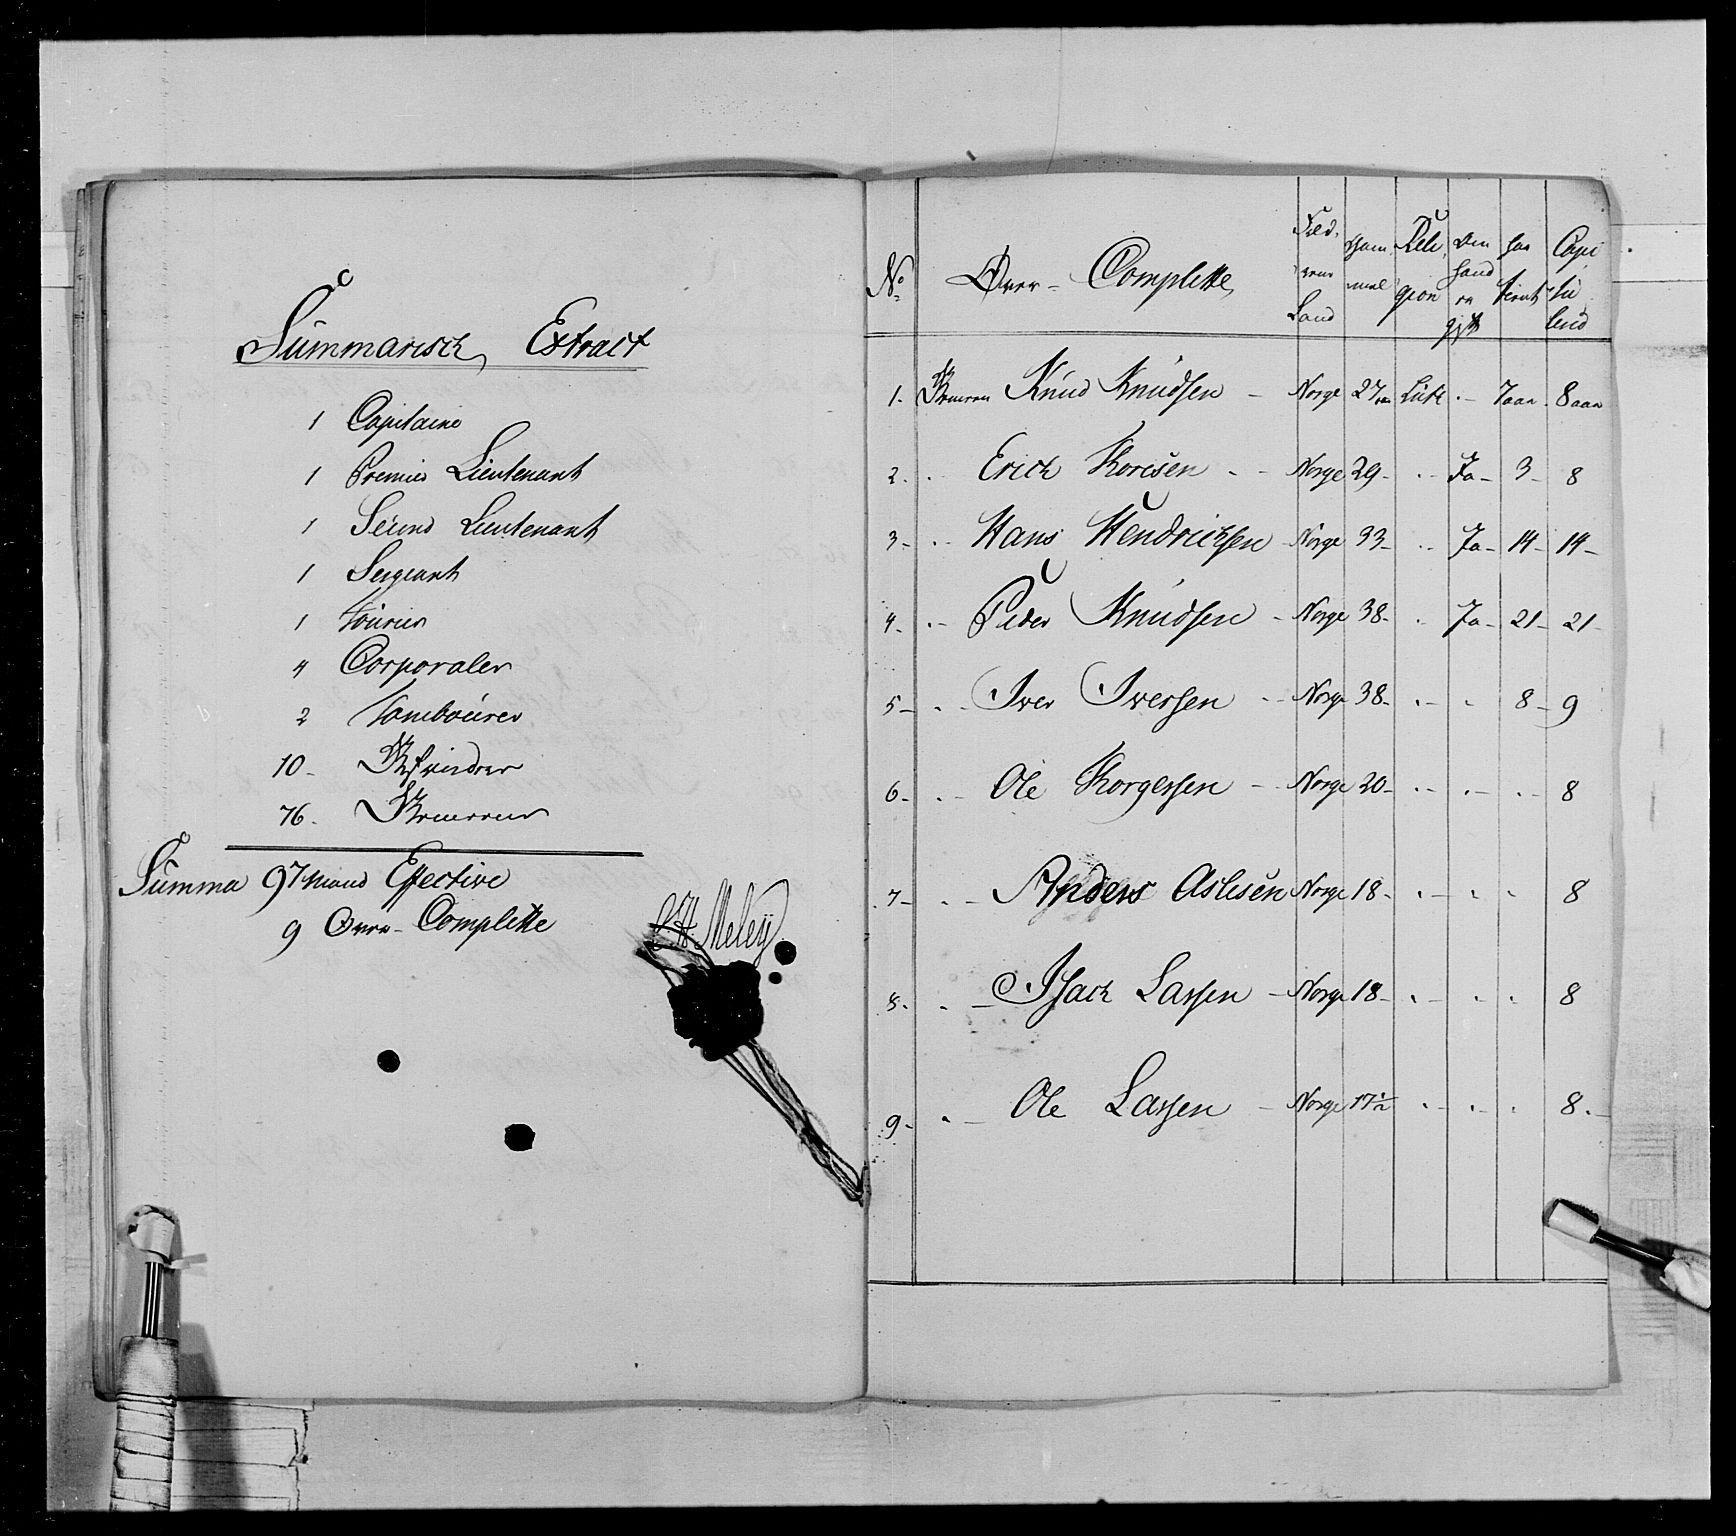 Summarisch Extract
1 Capitaine
1 Premier Lieutenant
1 Secund Lieutenant
1 Sergeant
1 Fourier
4 Corporaler
2 Tambourer
10 - Gefreidrer
76 -
Summa 97 Mand Effective
9 Over-Complette
Meley
No Over-Complette Fød- Gam Reli Om har Capi
rene mel gion hand tient tu
Land er gift lud
1. Knud Knudsen - Norge 27 aar Luth - 7 aar 8 aar
2. Erich Thoresen - - Norge 29 - - Ja - 3 - 8
3 - Hans Hendrichsen - Norge 33 - Ja - 14 - 14 -
4 - Peder Knudsen - Norge 38 - Ja - 21 - 21 -
5 - Iver Iversen - - Norge 38 - - 8 - 9
6 - Ole Torgersen - Norge 20 - - 8
7 - Anders Aslesen Norge 18 - - 8
8. Isach Larsen - Norge 18 - - 8
9 - Ole Larsen - Norge 17 1/2 - 8 -